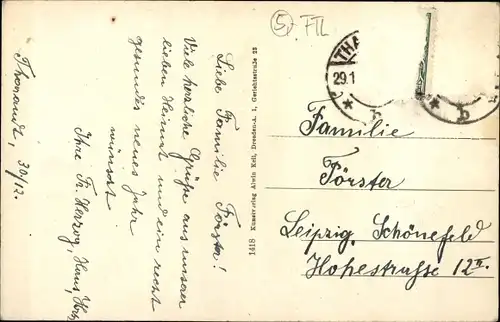 Tharandt, 30/12.
Liebe Familie Förster!
Viele herzliche Grüße aus unserer
lieben Heimat und ein recht
gesundes neues Jahr
wünscht
Ihre Fr. Herzog, Hans,
1418 Kunstverlag Alwin Keil, Dresden-A. 1, Gerichtsstraße 23
THA
29.1
b
b
Familie
Förster
Leipzig Schönefeld
Hohestrasse 12 II.